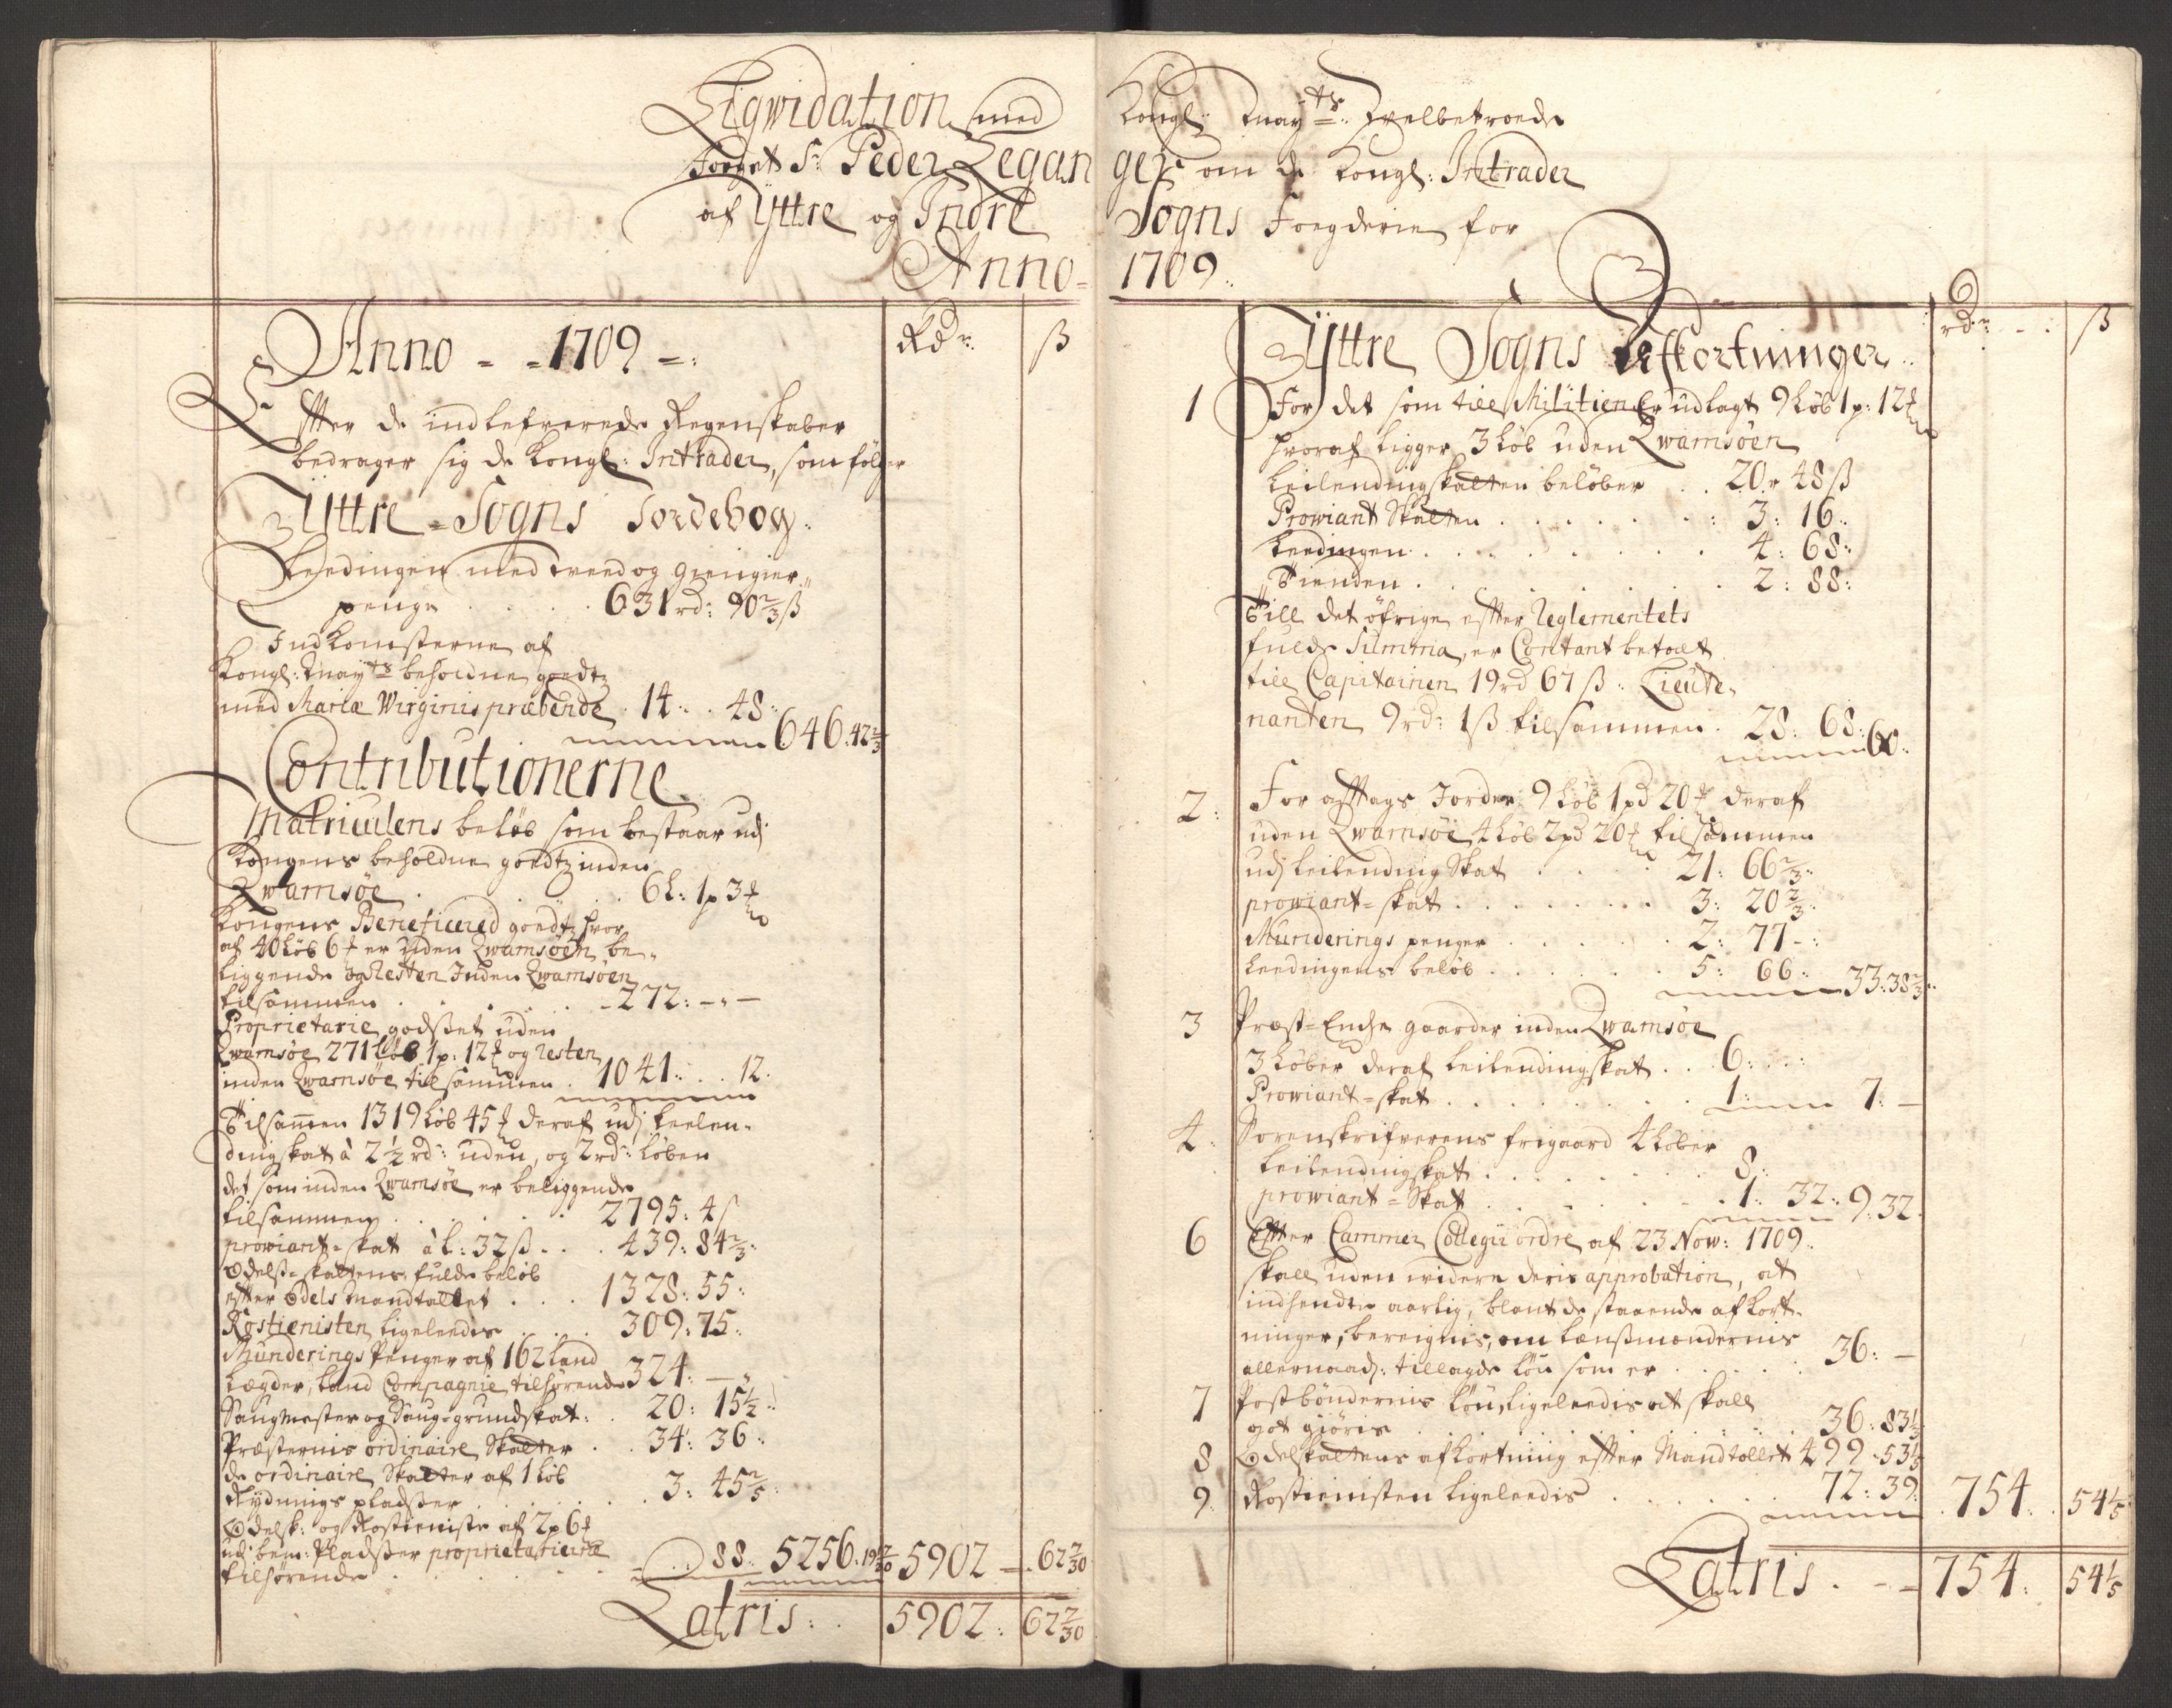 Liqwidation med Kongl: May:ts: Welbetroede
Foeget Sr: Peder Legan ger om de Kongl: Intrader
af Yttre og Indre Sogns Foegderie for
Anno = 1709 ..
Anno - - 1709 - : Rdr: ß
Effter de indlefverede Regenskaber
bedrager sig de Kongl: Intrader, som følger
Yttre = Sogns Jordebog.
Leedingen med tvend og giengier
penge . . . . 631 rd: 90 2/3 ß
Indkomsterne af
Kongl: Mayts beholdne goedtz
med Mariæ Wirginis præbende . 14: . 48:
646: 42 2/3
Contributionerne
Matriculens beløb som bestaar udj
Kongens beholdne goedtz inden
Qwamsøe . . . . 6 L: 1 p 3
Kongens Beneficered goedtz hvor
af 40 Løb 6 er uden Qwamsøen be-
liggende og Resten Inden Qwamsøen
tilsammen . . . . 272: - : -
Proprietarie godset uden
Qwamsøe 271 Løb 1 p: 12 og Resten
inden Qwamsøe tilsammen . 1041: . . 12.
Tilsamen 1319 Løb 45 deraf udj Leelen-
dingskat à 2 1/2 rd: uden, og 2 rd: Løben
det som inden Qwamsøe er beliggende
tilsammen . . . . 2795: 4 ß
prowiant = skat à L: 32 ß . . 439: 84 2/3:
Odelß = skattens fulde beløb
effter Odels Mandtallet . . . 1328: 55:
Rostienisten ligeleedis . . . 309: 75:
Munderings Penger af 162 Land
Lægder, Land Compagnie tilhørende 324: - :
Saugmester og Sauge grundskat: . 20: 15 1/2:
Præsternis ordinaire Skatter . . 34: 36:
de ordinaire Skatter af 1 Løb
Rydnings pladßer . . . . 3: 45 2/5:
Odelsk: og Rostieniste af 2 p 6
udj bem: Pladßer proprietarierne
tilhørende . . . . 88: 5256: 19 17/20 5902 - : 62 7/30
Latris: . 5902: 62 7/30
Yttre Sogns Afkortninger .. rdr: - : ß
1 For det som till Militien Er udlagt 9 Løb 1 p: 12
hvoraf ligger 3 Løb uden Qwamsøen
Leilendingskatten beløber . . 20 r 48 ß
Prowiant Skatten . . . . : 3: 16:
Leedingen . . . . 4: 68:
Tienden . . . . 2: 88:
Till det øfrige effter Reglementets
fulde Summa, er Contant betalt
till Capitainen 19 rd 67 ß: Lieute-
nanten 9 rd: 1 ß tilsammen . 28: 68:
60:
2: For afftags Jorder 9 Løb 1 pd 20 deraf
uden Qwamsøe 4 Løb 2 pd 20 tilsammen
udj Leilending Skat . . . 21: 66 2/3:
prowiant = skat . . . . 3: 20 2/3:
Munderings penger . . . . 2: 77 - :
Leedingens beløb . . . . 5: 66: 33: 38 2/3:
3 Præst = Enche gaarder inden Qwamsøe
3 Løber deraf Leilendingskat . . . 6: . . :
Prowiant = skat . . . . 1: 7: -
4: Sorenskrifverens frigaard 4 Løber
Leilendingskat . . . . 8:
prowiant = Skat . . . . 1: 32: 9: 32.
6 Effter Cammer Collegii ordre af 23 Now: 1709.
skall uden widere deris approbation, at
indsendte aarlig, blant de staaende afkort-
ninger, bereignis, om Lænsmændernis
allernaad: tillagde Løn som er . . . . 36: -
7 Postbøndernis Løn ligeleedis at skall
got giøris . . . . 36: 83 1/3
8 Odelskattens afkortning effter Mandtallet 499 - 53 1/5
9: Rostienisten ligeleedis . . . . 72: 39: 754: 54 1/5
Latris . - - 754: 54 1/5